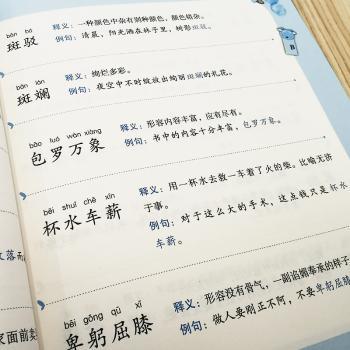 bān bó
斑驳
释义：一种颜色中杂有别种颜色，颜色错杂。
例句：清晨，阳光洒在林子里，树影斑驳。
B
bān lán
斑斓
释义：绚烂多彩。
例句：夜空中不时绽放出绚丽斑斓的礼花。
bāo luó wàn xiàng
包罗万象
释义：形容内容丰富，应有尽有。
例句：书中的内容十分丰富，包罗万象。
bēi shuǐ chē xīn
杯水车薪
释义：用一杯水去救一车着了火的柴。比喻无济
于事。
例句：对于这么大的手术，这点钱只是杯水
车薪。
bēi gōng qū xī
卑躬屈膝
释义：形容没有骨气，一副谄媚奉承的样子
例句：做人要刚正不阿，不要卑躬屈膝